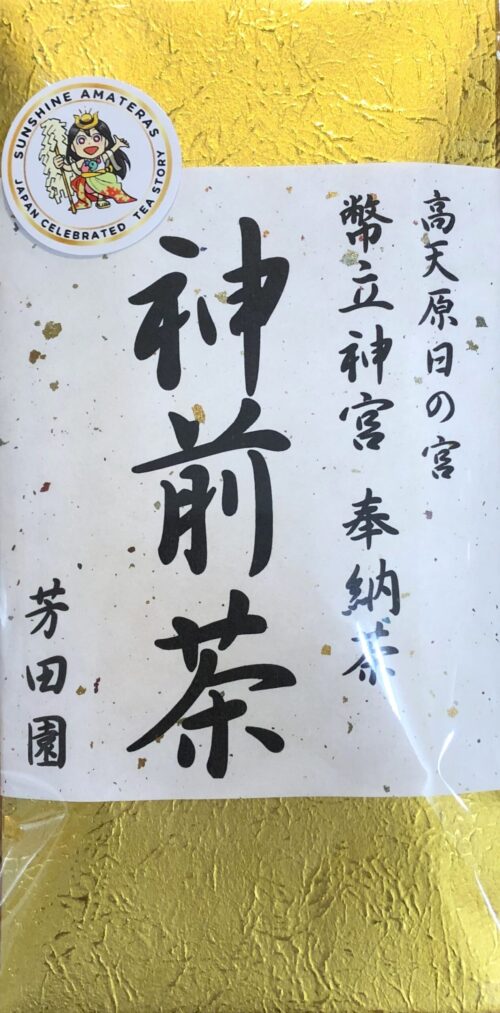 SUNSHINE AMATERAS
JAPAN CELEBRATED TEA STORY
高天原日の宮
幣立神宮 奉納茶
神前茶
芳田園